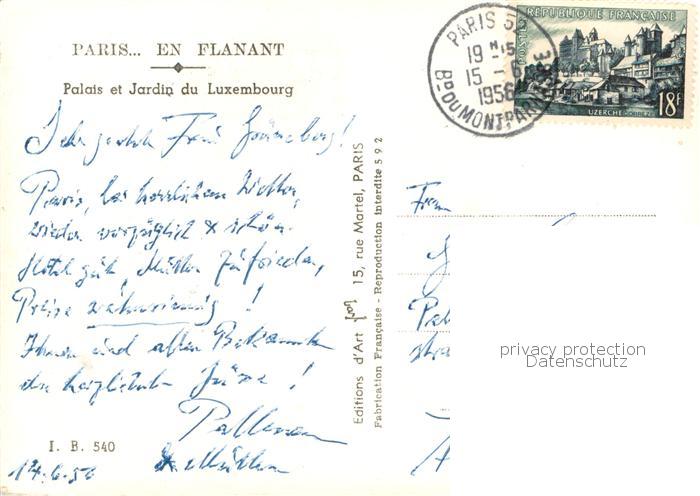 PARIS... EN FLANANT
Palais et Jardin du Luxembourg
Sehr geehrte Frau
Paris, bei herrlichem Wetter,
wieder vorzüglich & schön.
Hotel gut, Mutter zufrieden,
Preise wahnsinnig!
Ihnen und allen Bekannten
die herzlichsten Grüsse!
& Mutter
I. B. 540
14.6.56
Editions d'Art 15, rue Martel, PARIS
Fabrication Française - Reproduction interdite 592
PARIS 52
19 H 15
15 - 6
1956
BD DU MONTPARNASSE
REPUBLIQUE FRANÇAISE
POSTES
UZERCHE
18F
Frau
privacy protection
Datenschutz